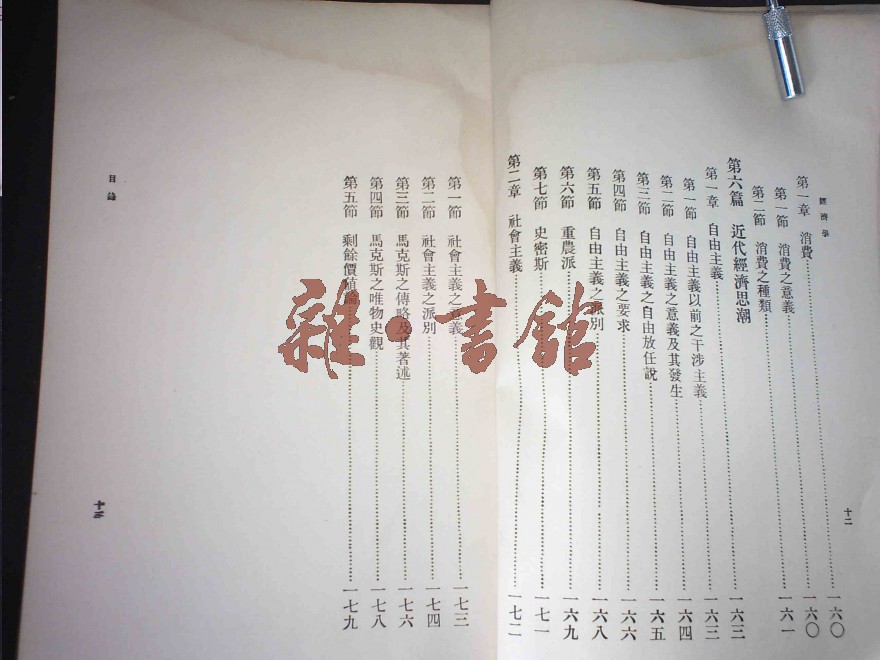 經濟學
第一章 消費……一六〇
第一節 消費之意義……一六〇
第二節 消費之種類……一六一
第六篇 近代經濟思潮
第一章 自由主義……一六三
第一節 自由主義以前之干涉主義……一六三
第二節 自由主義之意義及其發生……一六四
第三節 自由主義之自由放任說……一六五
第四節 自由主義之要求……一六六
第五節 自由主義之派別……一六八
第六節 重農派……一六九
第七節 史密斯……一七一
第二章 社會主義……一七二
十二
第一節 社會主義之意義……一七三
第二節 社會主義之派別……一七四
第三節 馬克斯之傳略及其著述……一七六
第四節 馬克斯之唯物史觀……一七八
第五節 剩餘價值論……一七九
目錄
十三
雜·書館